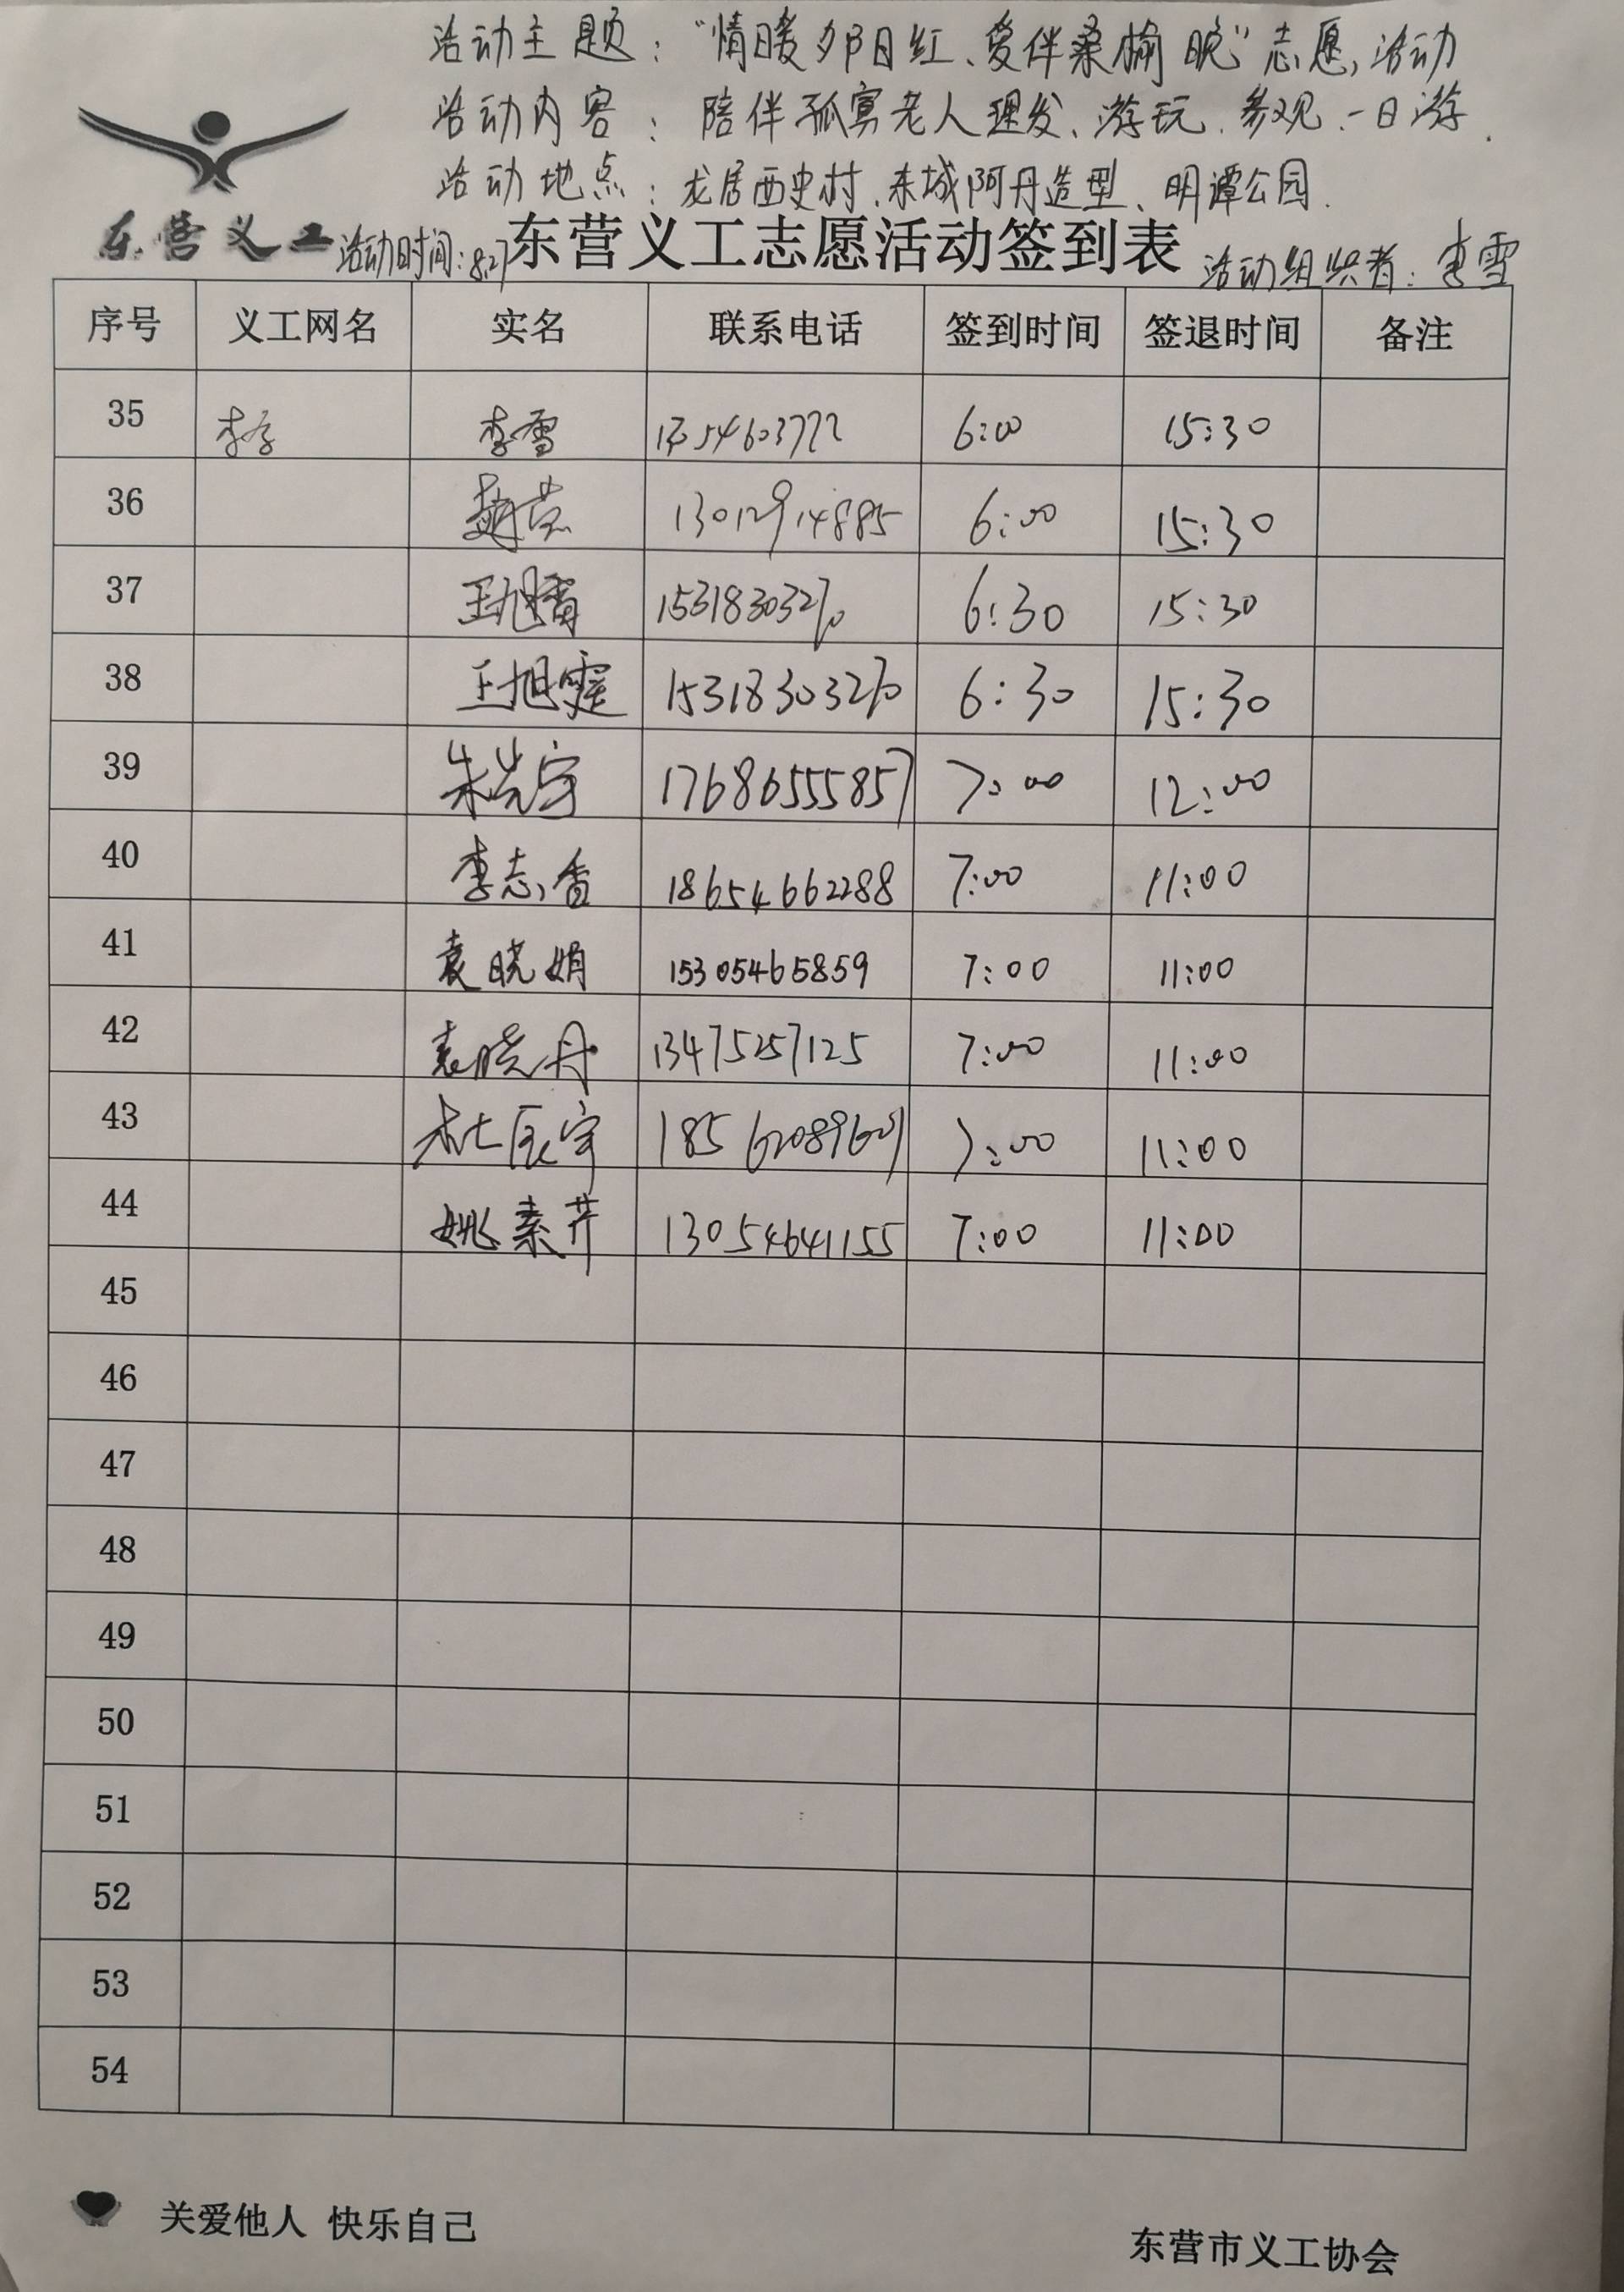 活动主题：“情暖夕阳红、爱伴桑榆晚”志愿活动
活动内容：陪伴孤寡老人理发、游玩、参观、一日游.
活动地点：龙居西史村、东城阿丹造型、明潭公园.
东营义工 活动时间:8.27 东营义工志愿活动签到表 活动组织者：李雪
序号 义工网名 实名 联系电话 签到时间 签退时间 备注
35 李雪 6:00 15:30
36 13012914885 6:00 15:30
37 15318303270 6:30 15:30
38 王旭霆 15318303270 6:30 15:30
39 朱先宇 17686555857 7:00 12:00
40 李志香 18654662288 7:00 11:00
41 袁晓娟 15305465859 7:00 11:00
42 袁晓丹 13475257125 7:00 11:00
43 杜宸宇 7:00 11:00
44 姚素芹 13054641155 7:00 11:00
45
46
47
48
49
50
51
52
53
54
关爱他人 快乐自己
东营市义工协会